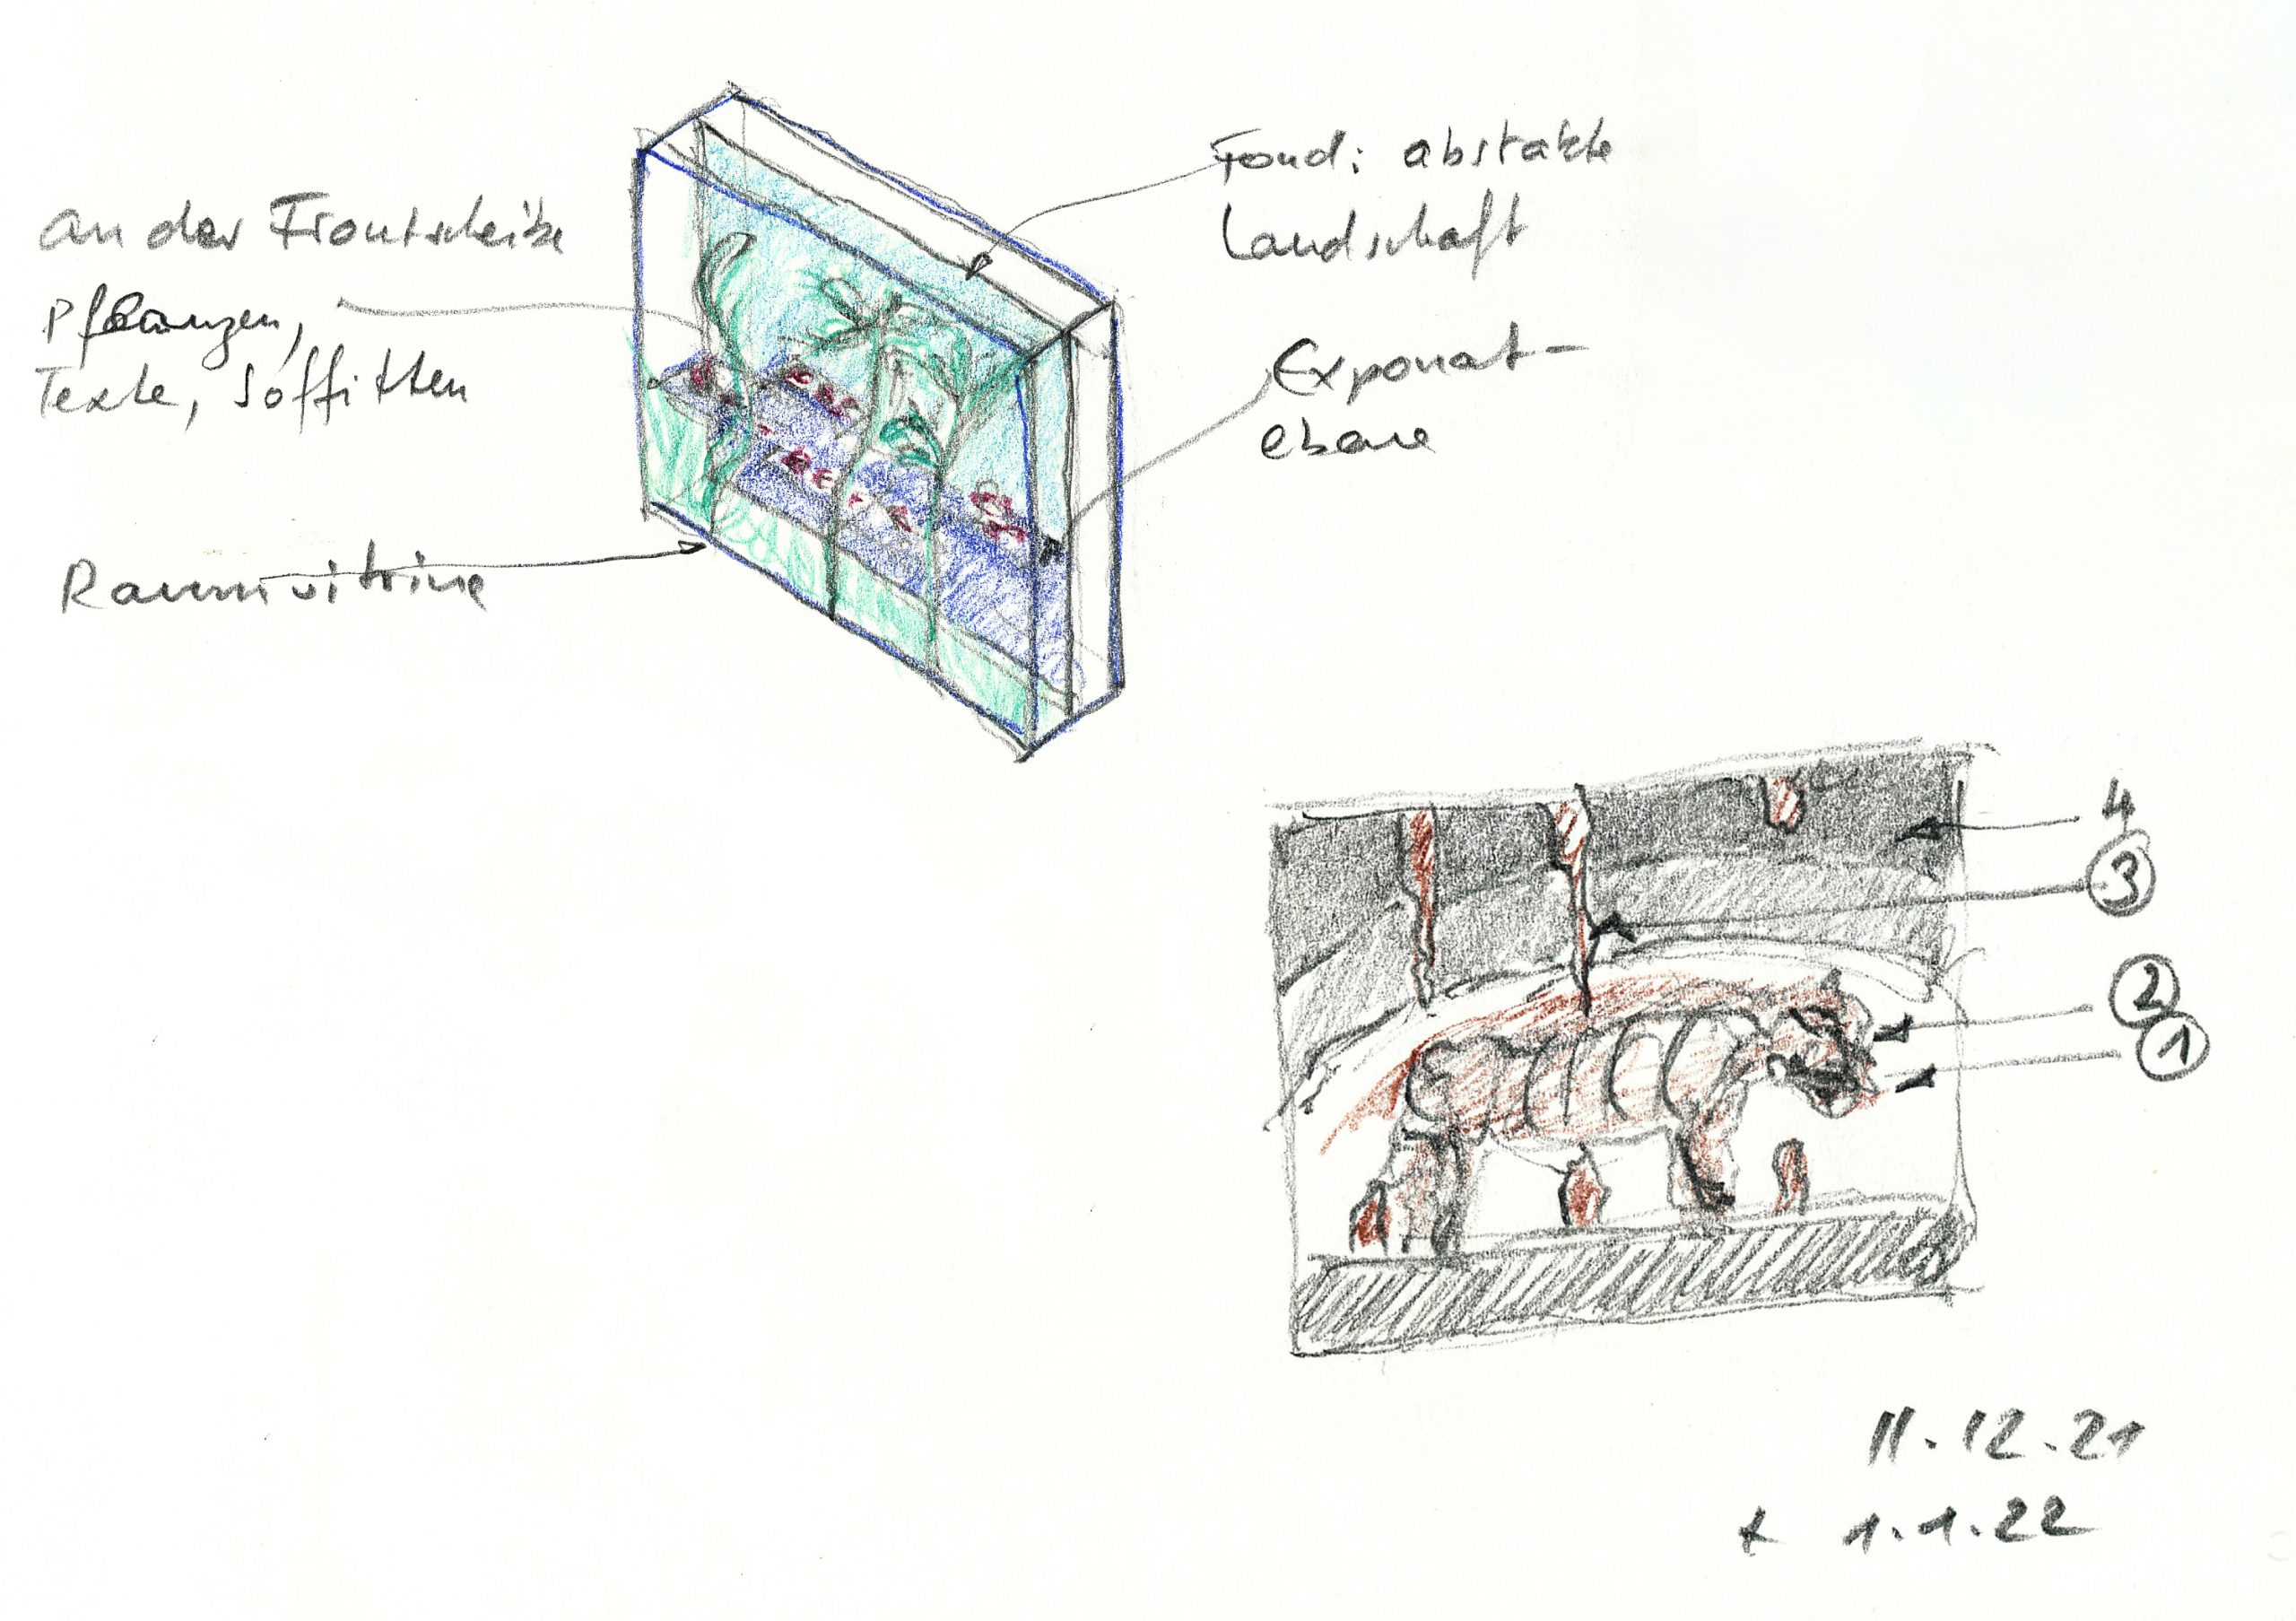 an der Frontscheibe
Pflanzen,
Texte, Soffitten
Raumvitrine
Fond: abstakte
Landschaft
Exponat-
ebene
4
3
2
1
11.12.21
+ 1.1.22